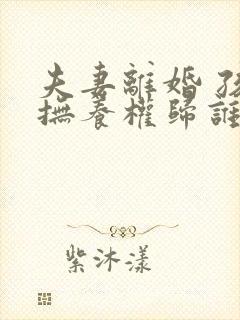 夫妻離婚 孩
撫養權歸誰
紫沐漾